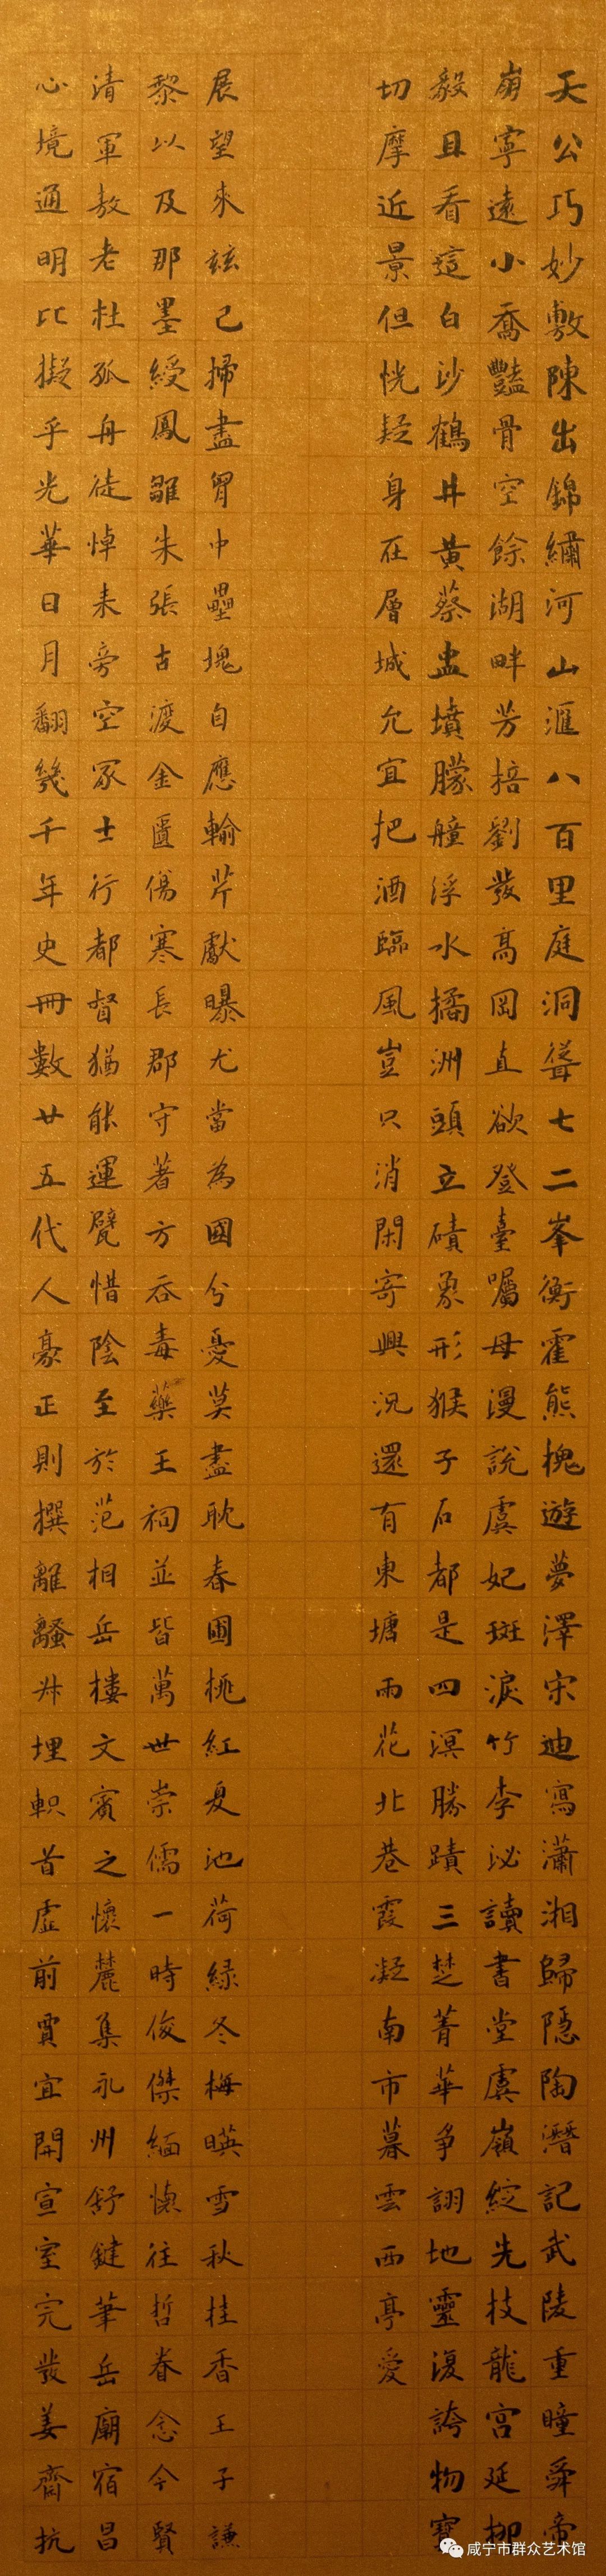 天公巧妙敷陳出錦繡河山滙八百里庭洞聳七二峯衡霍熊槐遊夢澤宋迪寫瀟湘歸隱陶潛記武陵重瞳舜帝
崩寧遠小喬豔骨空餘湖畔芳掊劉發高岡直欲登臺囑母漫說虞妃斑淚竹李泌讀書堂虞嶺綻先枝龍宮延柳
毅且看這白沙鶴井黃蔡盅墳朦艟浮水橘洲頭立磧象形猴子石都是四溟勝蹟三楚菁華爭詡地靈復誇物寶
切摩近景但恍疑身在層城允宜把酒臨風豈只消閑寄興況還有東塘雨花北巷霞凝南市暮雲西亭愛
心境通明比擬乎光華日月翻幾千年史冊數廿五代人豪正則撰離騷叔埋軹首虛前賈宜開宣室完發姜齋抗
清軍敖老杜孤舟徒悼耒旁空冢士行都督猶能運甓惜陰至於范相岳樓文賓之懷麓集永州舒鍵筆岳廟宿昌
黎以及那墨綬鳳雛朱張古渡金匱傷寒長郡守著方吞毒藥王祠並皆萬世崇儒一時俊傑緬懷往哲眷念今賢
展望來茲已掃盡胷中壘塊自應輸芹獻曝尤當為國分憂莫盡耽春圃桃紅夏池荷綠冬梅暎雪秋桂香王子謙
咸宁市群众艺术馆